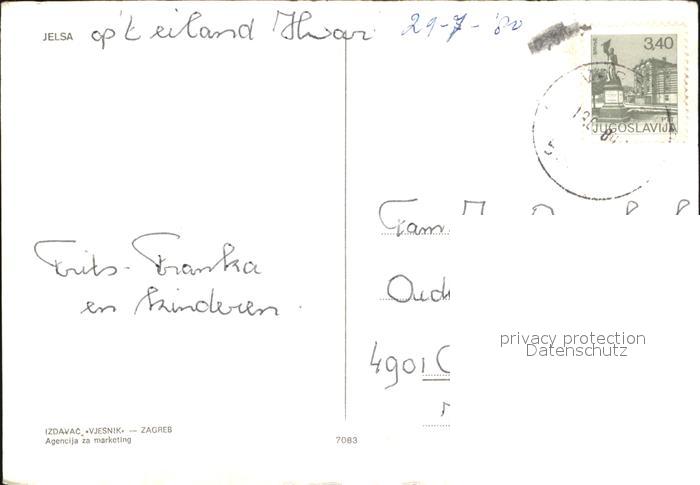 JELSA op't eiland Hvar 29-7-'80
3,40
JUGOSLAVIJA
Fam.
Frits - Franka
en kinderen.
Oud
privacy protection
Datenschutz
4901
IZDAVAČ »VJESNIK« — ZAGREB
Agencija za marketing
7083